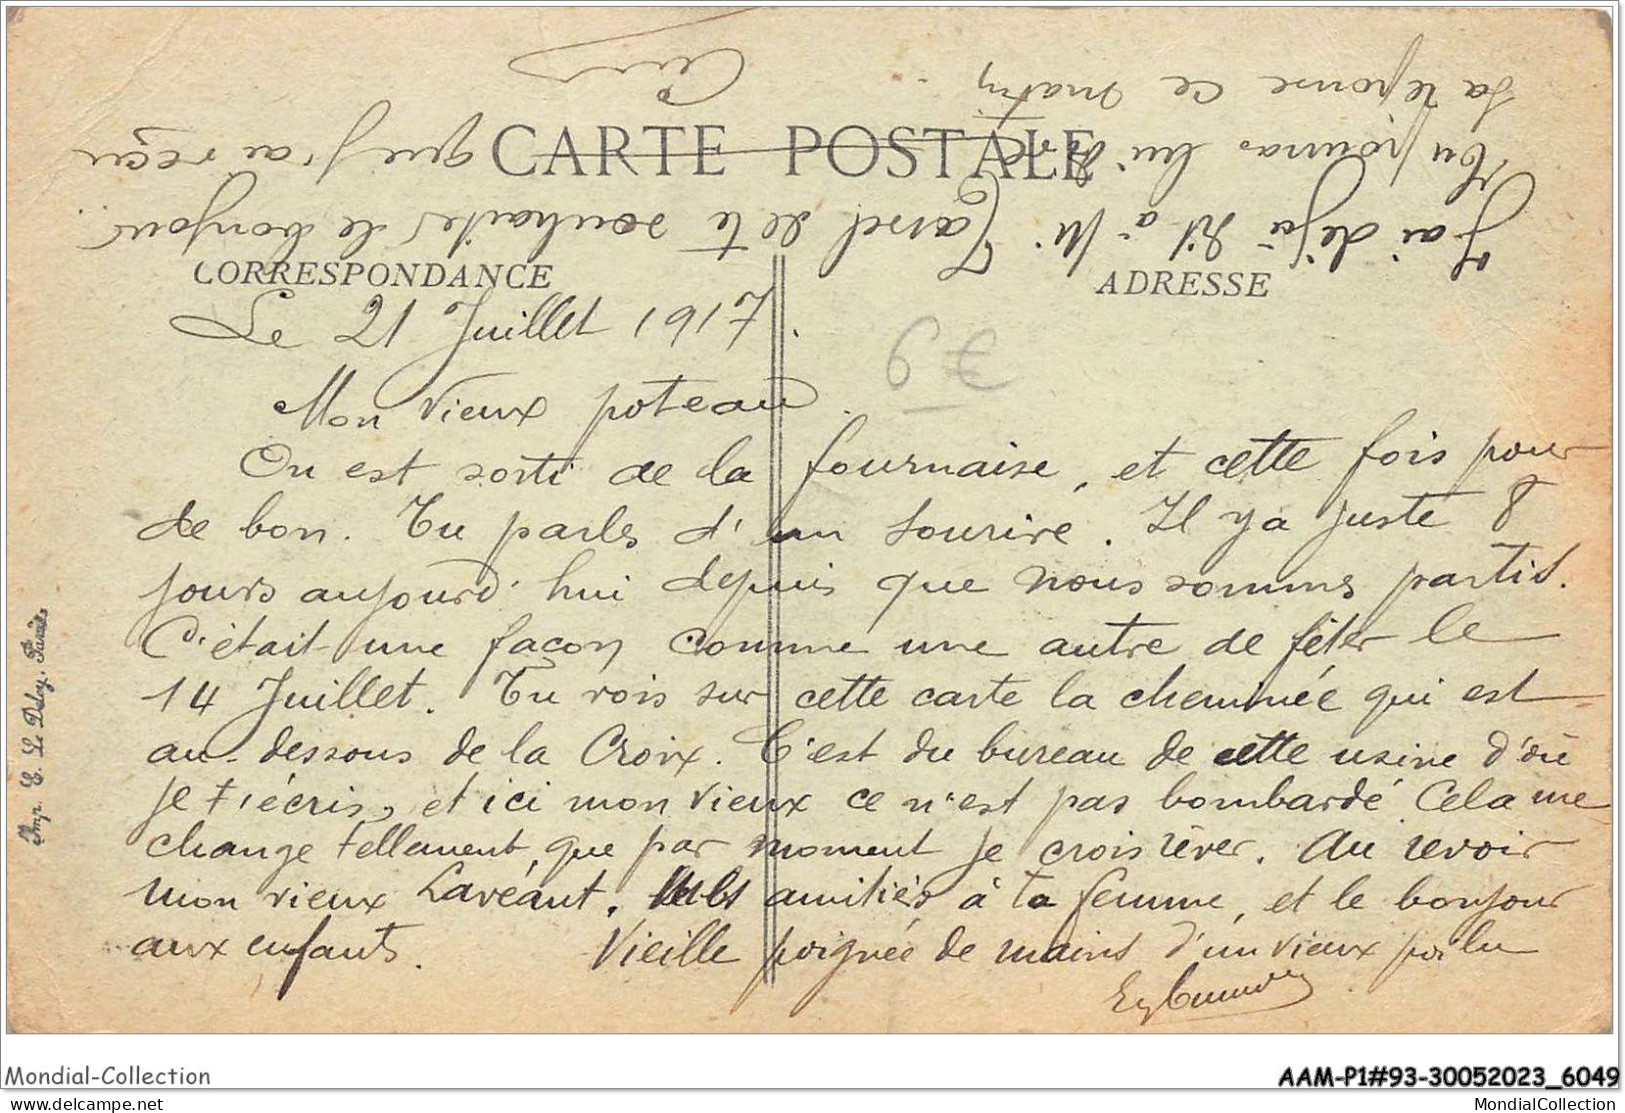 CARTE POSTALE
CORRESPONDANCE
ADRESSE
Le 21 Juillet 1917.
Mon vieux poteau.
On est sorti de la fournaise, et cette fois pour
de bon. Tu parles d'un sourire. Il y a juste 8
jours aujourd'hui depuis que nous sommes partis.
C'était une façon comme une autre de fêter le
14 Juillet. Tu vois sur cette carte la cheminée qui est
au-dessous de la Croix. C'est du bureau de cette usine d'où
je t'écris, et ici mon vieux ce n'est pas bombardé Cela me
change tellement, que par moment je crois rêver. Au revoir
mon vieux Lavéant. Mes amitiés à ta femme, et le bonjour
aux enfants. Vieille poignée de mains d'un vieux poilu
J'ai déjà dit à M. Tassel de te souhaiter le bonjour
Tu pourras lui dire que j'ai reçu
sa réponse ce matin.
9 €
Imp. E. Le Deley, Paris
Mondial-Collection
AAM-P1#93-30052023_6049
delcampe.net
MondialCollection